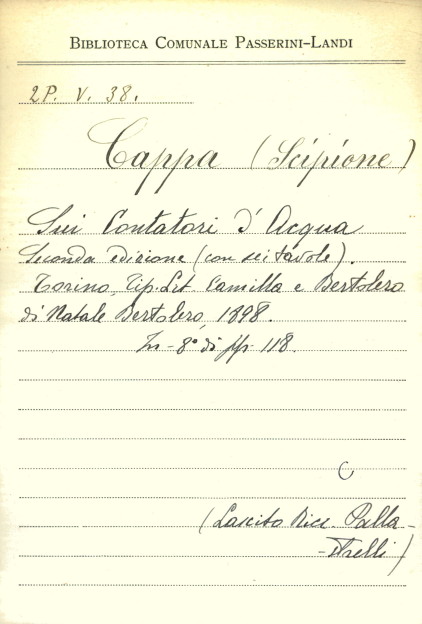 BIBLIOTECA COMUNALE PASSERINI-LANDI
2P. V. 38.
Cappa (Scipione)
Sui Contatori d'Acqua
Seconda edizione (con sei tavole).
Torino, Tip. Lit. Camilla e Bertolero
di Natale Bertolero, 1898.
In-8° di pp. 118.
C
(Lascito Ricc. Palla-
-strelli)